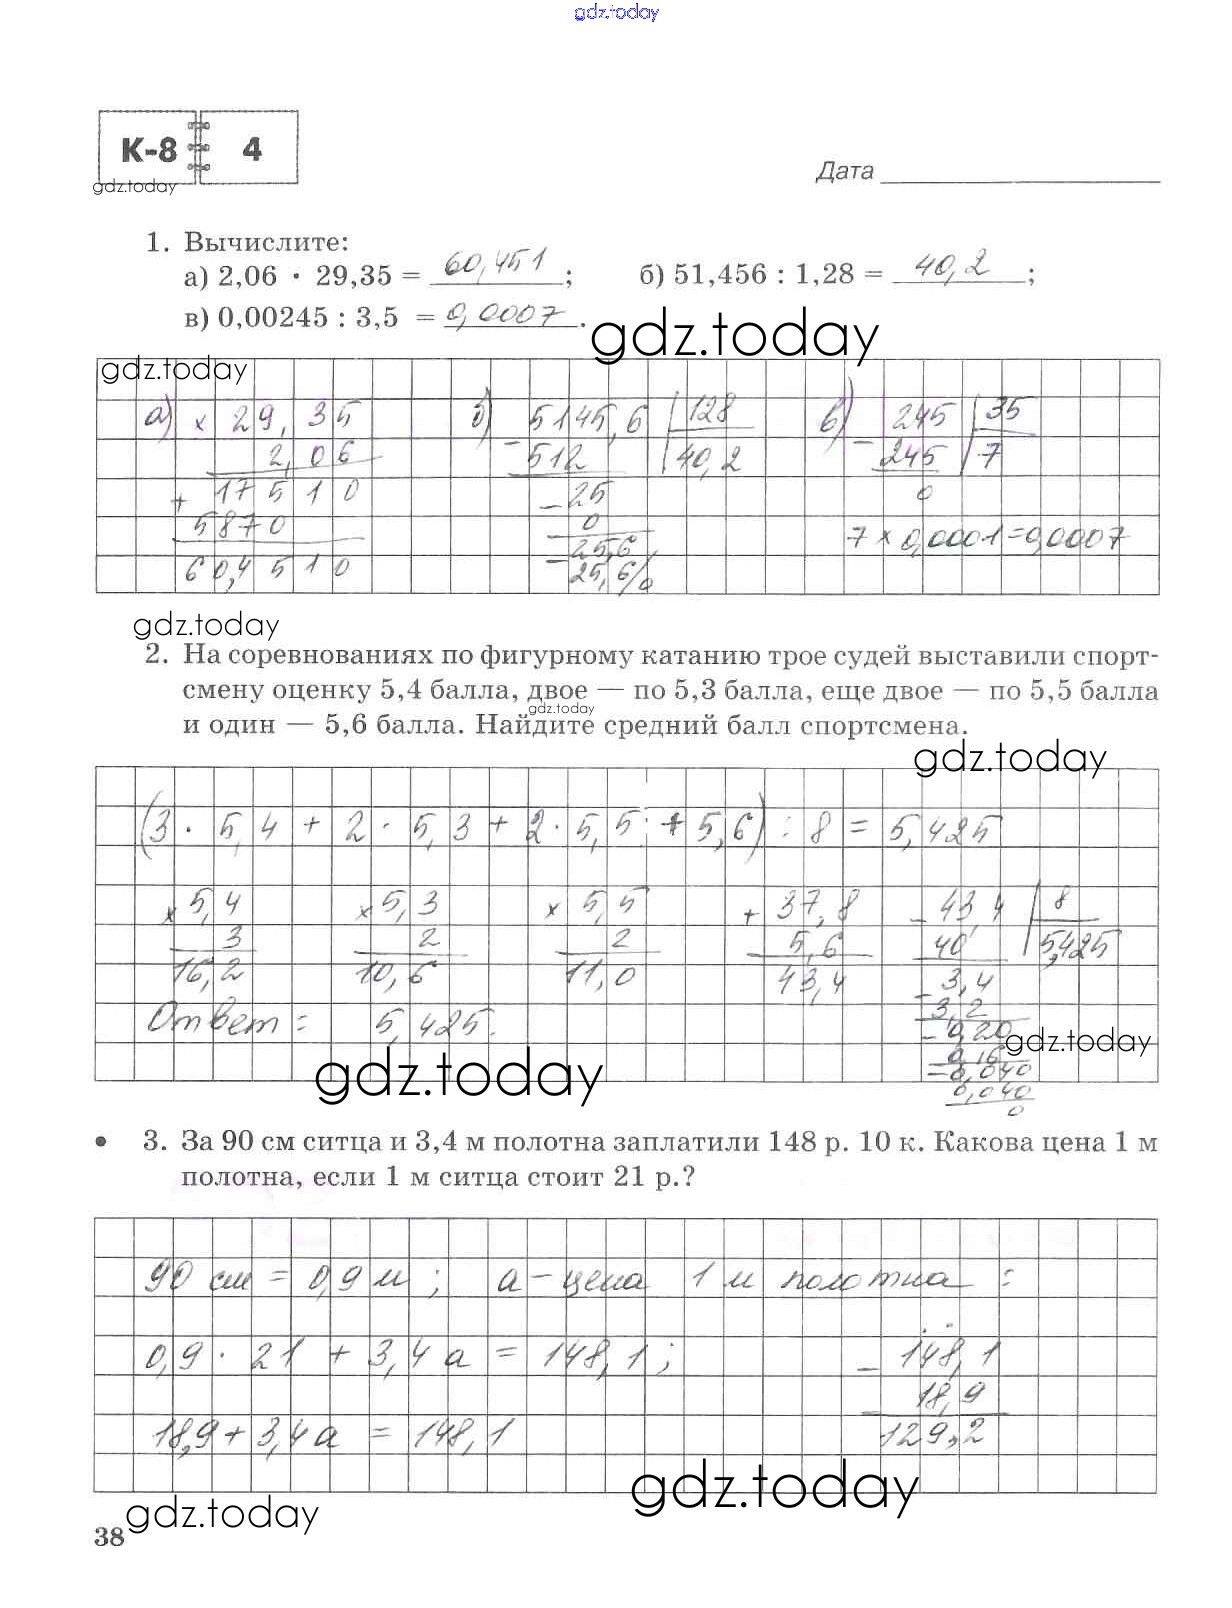 gdz.today
К-8 4
gdz.today
Дата
1. Вычислите:
а) 2,06 · 29,35 = 60,451; б) 51,456 : 1,28 = 40,2;
в) 0,00245 : 3,5 = 0,0007.
gdz.today
gdz.today
а) × 29,35 б) 5145,6 128 в) 245 35
2,06 – 512 40,2 – 245 7
+ 17510 – 25 0
5870 0 7 × 0,0001 = 0,0007
60,4510 – 25,6
25,6
0
gdz.today
2. На соревнованиях по фигурному катанию трое судей выставили спорт-
смену оценку 5,4 балла, двое — по 5,3 балла, еще двое — по 5,5 балла
gdz.today
и один — 5,6 балла. Найдите средний балл спортсмена.
gdz.today
(3 · 5,4 + 2 · 5,3 + 2 · 5,5 + 5,6) : 8 = 5,425
× 5,4 × 5,3 × 5,5 + 37,8 – 43,4 8
3 2 2 5,6 40 5,425
16,2 10,6 11,0 43,4 – 3,4
Ответ: 5,425. 3,2
– 0,20
gdz.today
0,16
– 0,040
gdz.today
0,040
0
• 3. За 90 см ситца и 3,4 м полотна заплатили 148 р. 10 к. Какова цена 1 м
полотна, если 1 м ситца стоит 21 р.?
90 см = 0,9 м; а – цена 1 м полотна:
0,9 · 21 + 3,4 а = 148,1; – 148,1
18,9
18,9 + 3,4 а = 148,1 129,2
gdz.today
gdz.today
38